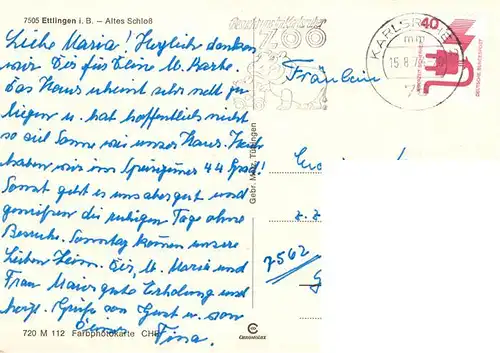 7505 Ettlingen i. B. – Altes Schloß
Liebe Maria! Herzlich danken
wir Dir für Deine Karte.
Das Haus scheint sehr nett zu
liegen u. hat hoffentlich nicht
so viel Sonne wie unser Haus.
haben wir im 44 Grad!
Sonst geht es uns aber gut und
genießen die ruhigen Tage ohne
Besuche. Sonntag kommen unsere
Lieben heim. Dir, Maria und
Frau gute Erholung und
herzl. Grüße von u. von
Deiner Tina.
720 M 112 Farbphotokarte
Gebr. Metz, Tübingen
CHROMOLUX
ZOO
KARLSRUHE
mm
15.8.
40
DEUTSCHE BUNDESPOST
Fräulein
z. Z.
7562